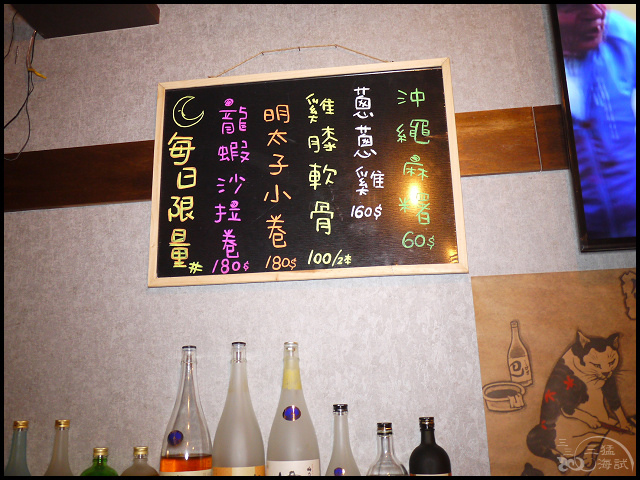 每日限量
龍蝦沙拉卷 180$
明太子小卷 180$
雞膝軟骨 100/2本
蔥蔥雞 160$
沖繩麻糬 60$